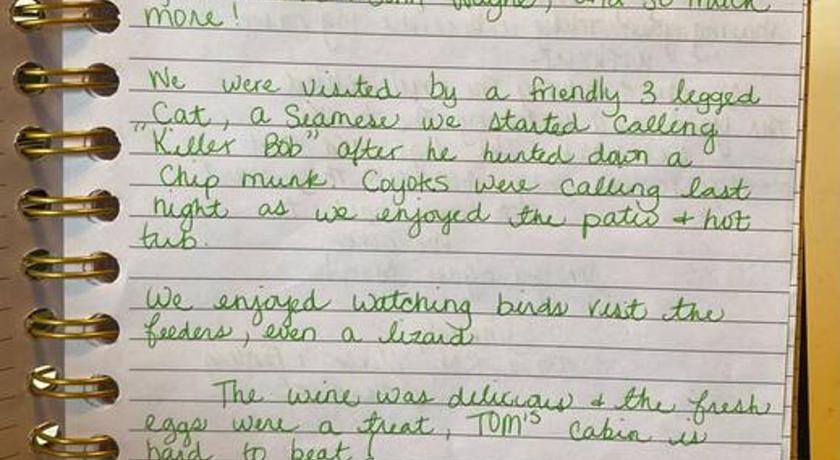 Wayne, and so much
more!
We were visited by a friendly 3 legged
Cat, a Siamese we started calling
"Killer Bob" after he hunted down a
Chip munk. Coyotes were calling last
night as we enjoyed the patio + hot
tub.
We enjoyed watching birds visit the
feeders, even a lizard
The wine was delicious & the fresh
eggs were a treat, TOM'S cabin is
hard to beat!